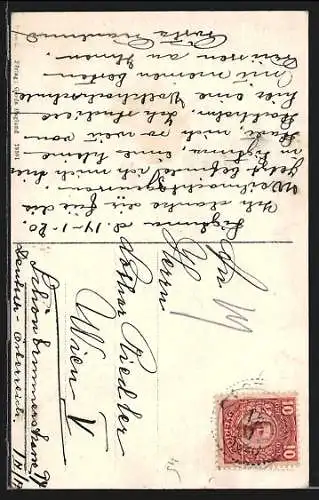 Sigtuna d. 14-1-20.
Ich danke dir für die
Weihnachtsgrüssen.
Jetzt befinde ich mich hier
in Sigtuna, eine kleine
Stadt nicht so weit von
Stockholm. Ich studiere
hier eine Volkhochschule
mit meinen besten
Grüssen an Ihnen.
Herrn
Lothar Riedler
Wien V
Schönbrunnerstrasse
Deutsch-Österreich.
45
10 10